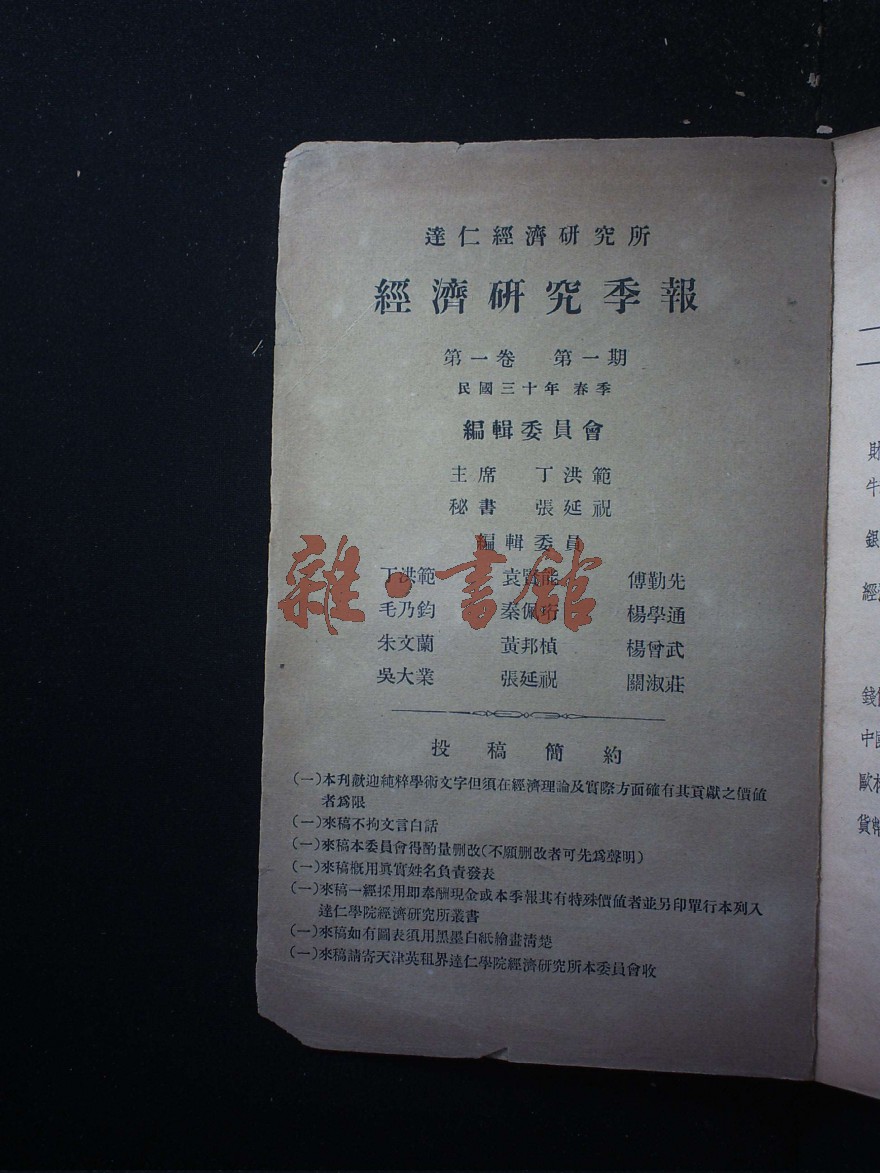 達仁經濟研究所
經濟研究季報
第一卷 第一期
民國三十年 春季
編輯委員會
主席 丁洪範
秘書 張延祝
編輯委員
丁洪範 袁賢能 傅勤先
毛乃鈞 秦佩珩 楊學通
朱文蘭 黃邦楨 楊曾武
吳大業 張延祝 關淑莊
雜·書館
投稿簡約
(一)本刊歡迎純粹學術文字但須在經濟理論及實際方面確有其貢獻之價值
者爲限
(一)來稿不拘文言白話
(一)來稿本委員會得酌量删改(不願删改者可先爲聲明)
(一)來稿槪用眞實姓名負責發表
(一)來稿一經採用卽奉酬現金或本季報其有特殊價值者並另印單行本列入
達仁學院經濟研究所叢書
(一)來稿如有圖表須用黑墨白紙繪畫淸楚
(一)來稿請寄天津英租界達仁學院經濟研究所本委員會收
財
牛
銀
經濟
錢
中國
歐
貨幣